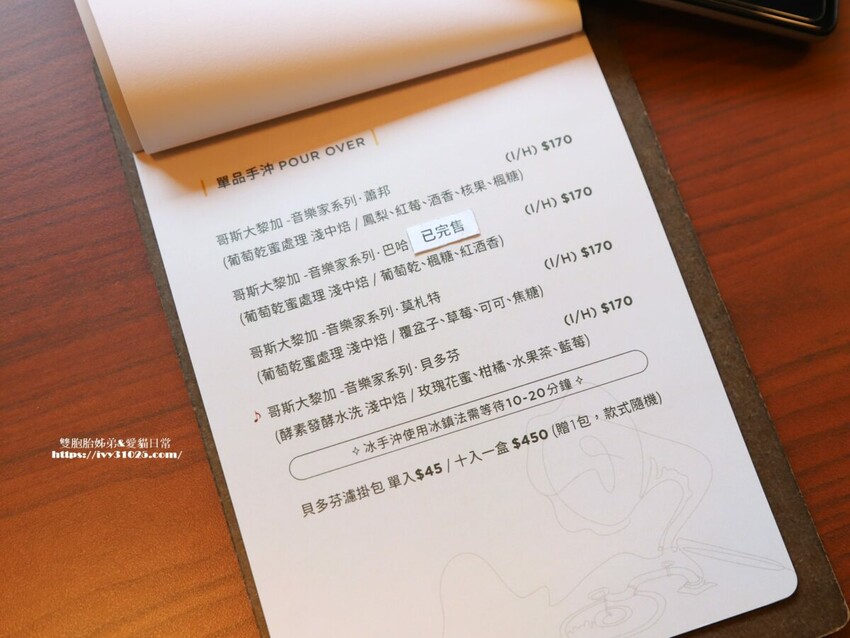 單品手沖 POUR OVER
哥斯大黎加 -音樂家系列·蕭邦 (I/H) $170
(葡萄乾蜜處理 淺中焙 / 鳳梨、紅莓、酒香、核果、楓糖)
哥斯大黎加 -音樂家系列·巴哈 已完售 (I/H) $170
(葡萄乾蜜處理 淺中焙 / 葡萄乾、楓糖、紅酒香)
哥斯大黎加 -音樂家系列·莫札特 (I/H) $170
(葡萄乾蜜處理 淺中焙 / 覆盆子、草莓、可可、焦糖)
♪ 哥斯大黎加 -音樂家系列·貝多芬 (I/H) $170
(酵素發酵水洗 淺中焙 / 玫瑰花蜜、柑橘、水果茶、藍莓)
✧ 冰手沖使用冰鎮法需等待10-20分鐘 ✧
貝多芬濾掛包 單入$45 / 十入一盒 $450 (贈1包，款式隨機)
雙胞胎姊弟&愛貓日常
https://ivy31025.com/